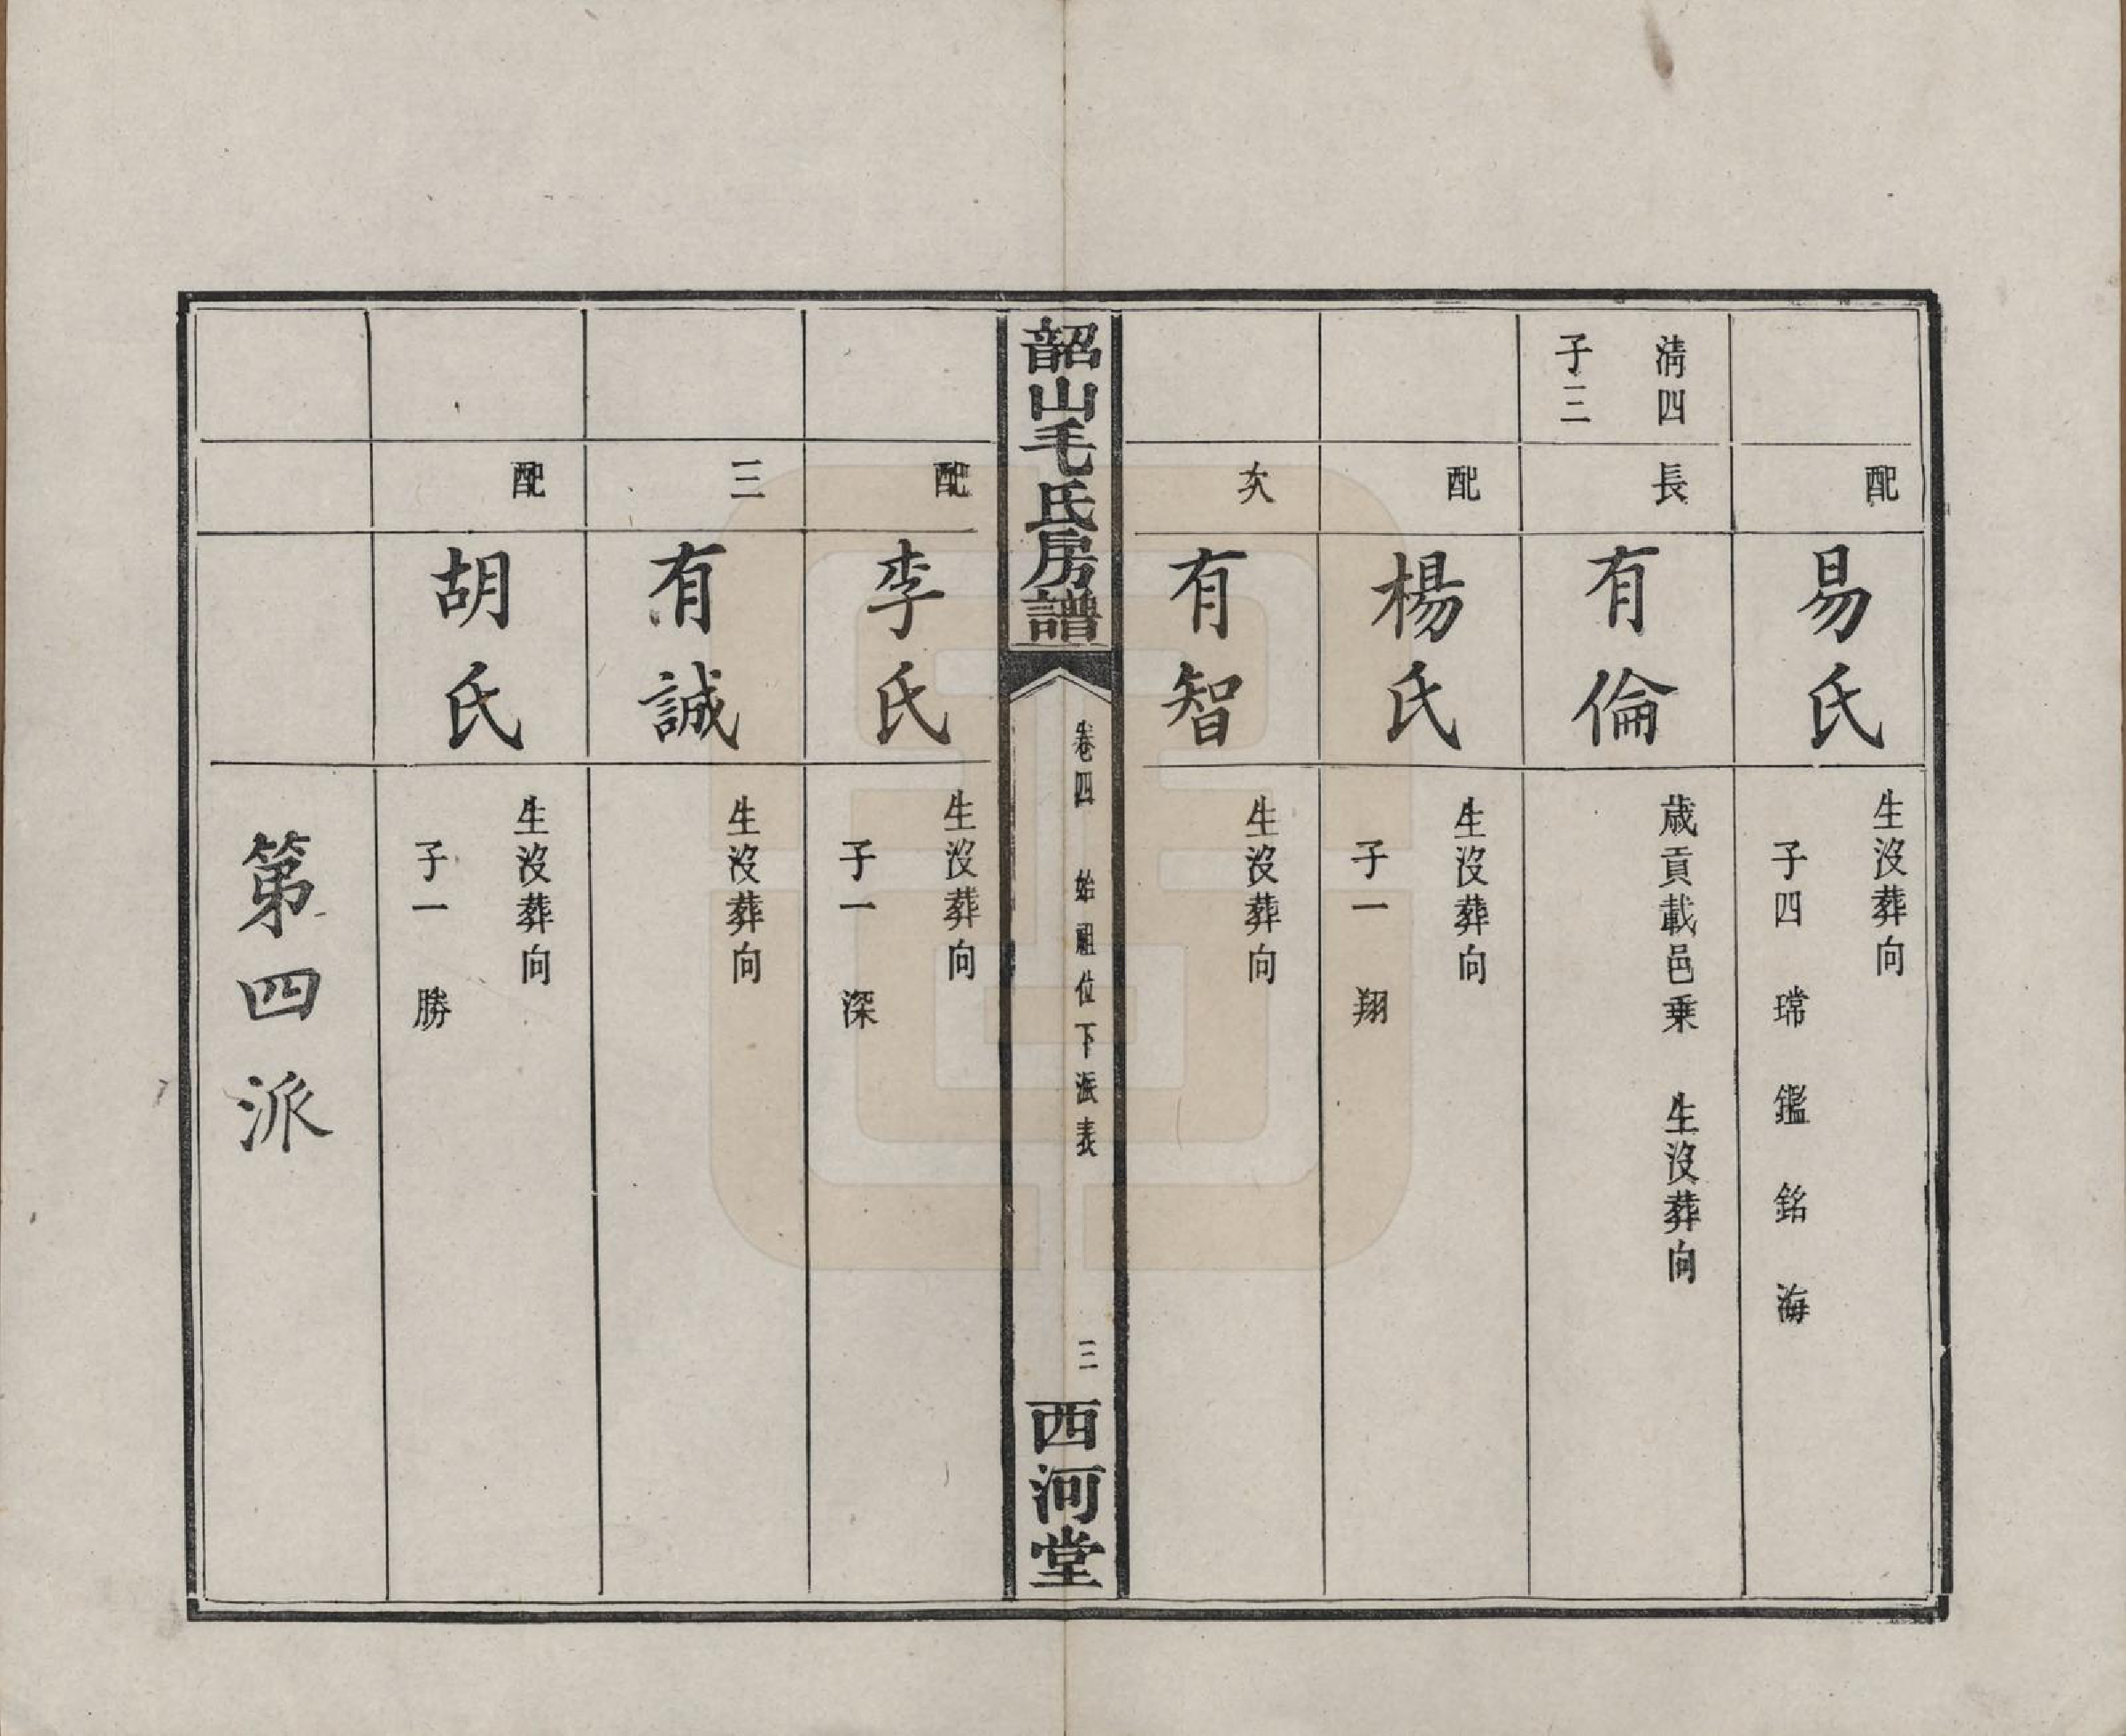 配
易氏
生沒葬向
子四 瑺 鑑 銘 海
清四
子三
長
有倫
歲貢載邑乗 生沒葬向
配
楊氏
生沒葬向
子一 翔
次
有智
生沒葬向
韶山毛氏房譜
卷四 始祖位下派表
三
西河堂
配
李氏
生沒葬向
子一 深
三
有誠
生沒葬向
配
胡氏
生沒葬向
子一 勝
第四派